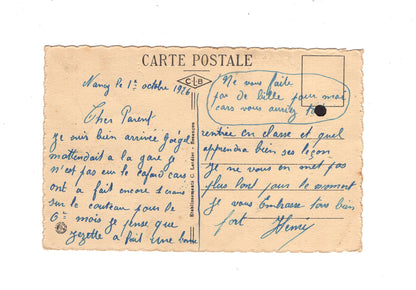 CARTE POSTALE
Nancy le 1er octobre 1926
Cher Parent
je suis bien arrivée
m'attendait à la gare
n'est pas eur le car
ont a fait encore 1
sur le couteau pour le
6 mois je pense que
zezette a fait une bonne
C L B
Etablissements C. Lardier - Besançon
Ne vous faite
pas de bille pour moi
cars vous auriez tort
rentrée en classe et quel
apprendra bien ses leçon
Je ne vous en met pas
plus long pour le moment
Je vous Embrasse tous bien
fort Henri